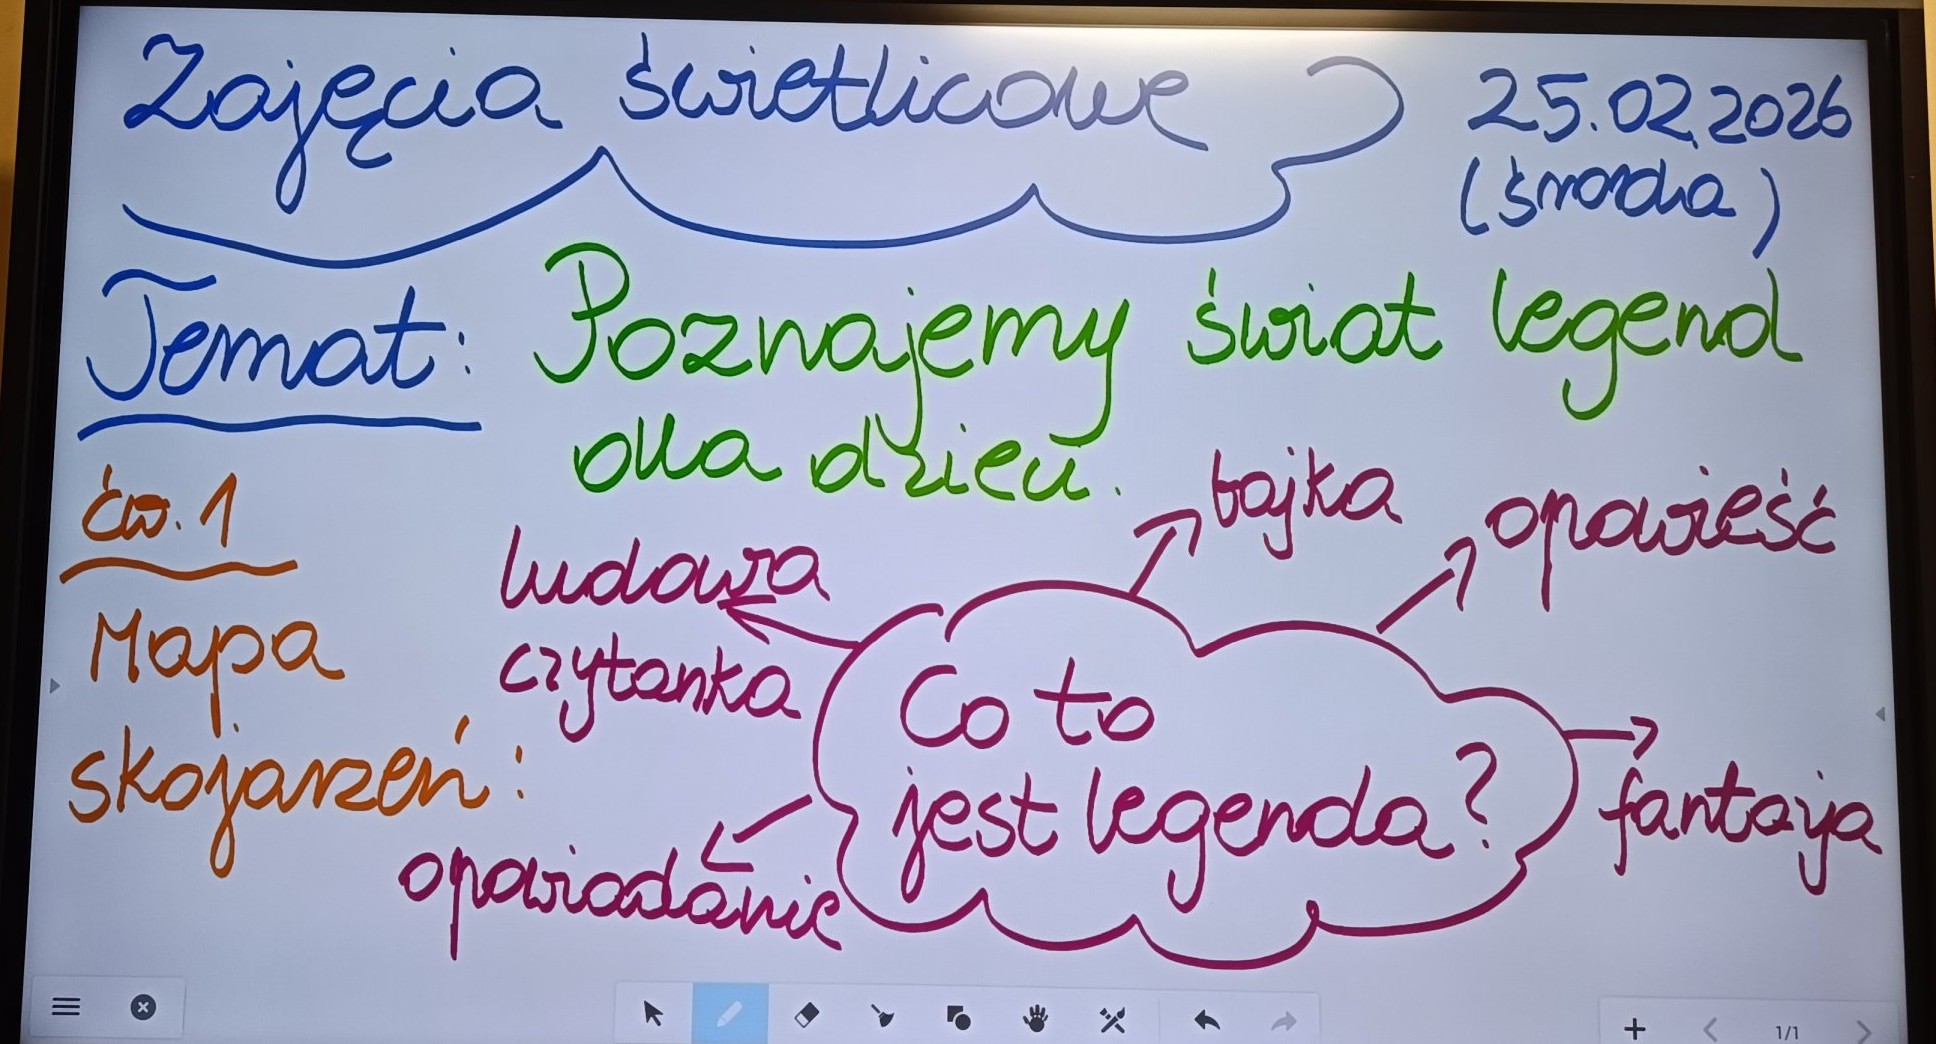 Zajęcia świetlicowe
25.02.2026
(środa)
Temat: Poznajemy świat legend
dla dzieci.
ćw. 1
Mapa
skojarzeń:
ludowa
czytanka
bajka
opowieść
Co to
jest legenda?
fantazja
opowiadanie
1/1